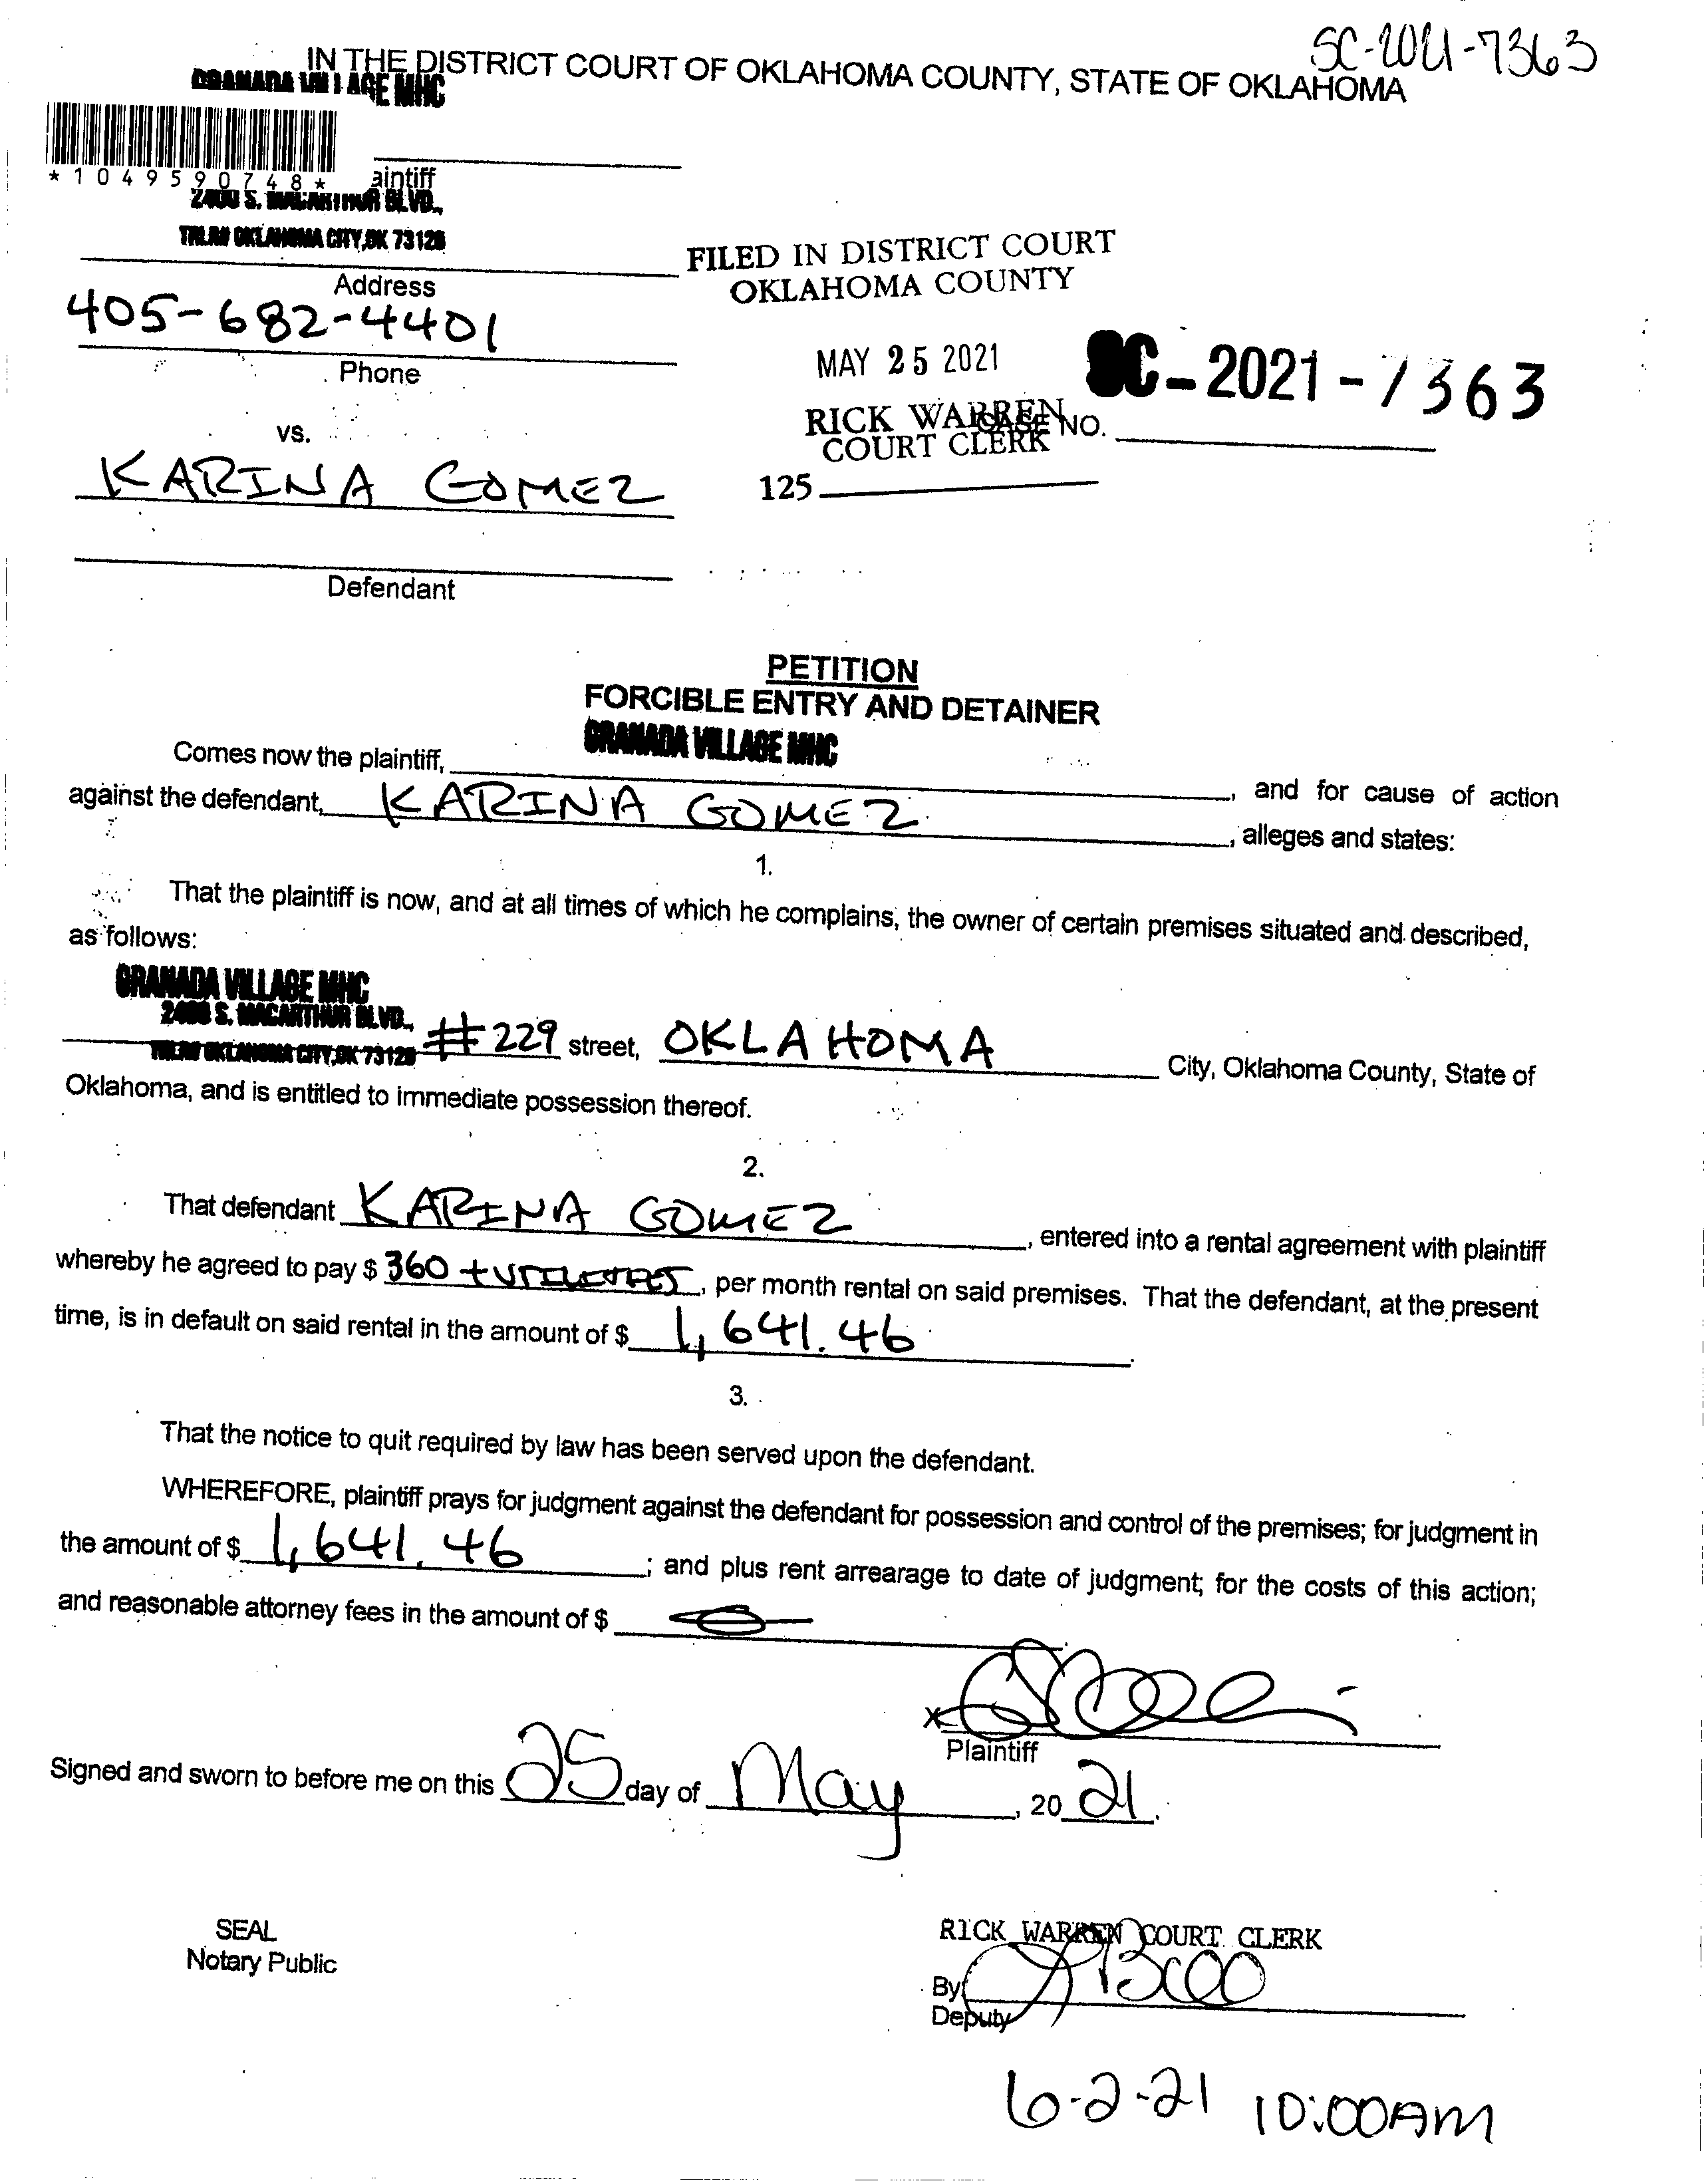 SC-2021-7363
IN THE DISTRICT COURT OF OKLAHOMA COUNTY, STATE OF OKLAHOMA
GRANADA VILLAGE MHC
*1049590748*
aintiff
2400 S. MACARTHUR BLVD.,
OKLAHOMA CITY, OK 73128
Address
405-682-4401
Phone
vs.
KARINA GOMEZ
Defendant
FILED IN DISTRICT COURT
OKLAHOMA COUNTY
MAY 25 2021
SC-2021-7363
RICK WARREN
COURT CLERK
CASE NO.
125
PETITION
FORCIBLE ENTRY AND DETAINER
GRANADA VILLAGE MHC
Comes now the plaintiff, , and for cause of action
against the defendant, KARINA GOMEZ , alleges and states:
1.
That the plaintiff is now, and at all times of which he complains, the owner of certain premises situated and described,
as follows:
GRANADA VILLAGE MHC
2400 S. MACARTHUR BLVD.,
OKLAHOMA CITY, OK 73128 #229 street, OKLAHOMA City, Oklahoma County, State of
Oklahoma, and is entitled to immediate possession thereof.
2.
That defendant KARINA GOMEZ , entered into a rental agreement with plaintiff
whereby he agreed to pay $ 360 + UTILITIES , per month rental on said premises. That the defendant, at the present
time, is in default on said rental in the amount of $ 1,641.46 .
3.
That the notice to quit required by law has been served upon the defendant.
WHEREFORE, plaintiff prays for judgment against the defendant for possession and control of the premises; for judgment in
the amount of $ 1,641.46 ; and plus rent arrearage to date of judgment; for the costs of this action;
and reasonable attorney fees in the amount of $ 0 .
X
Plaintiff
Signed and sworn to before me on this 25 day of May , 20 21.
SEAL
Notary Public
RICK WARREN COURT CLERK
By
Deputy
6-2-21 10:00AM